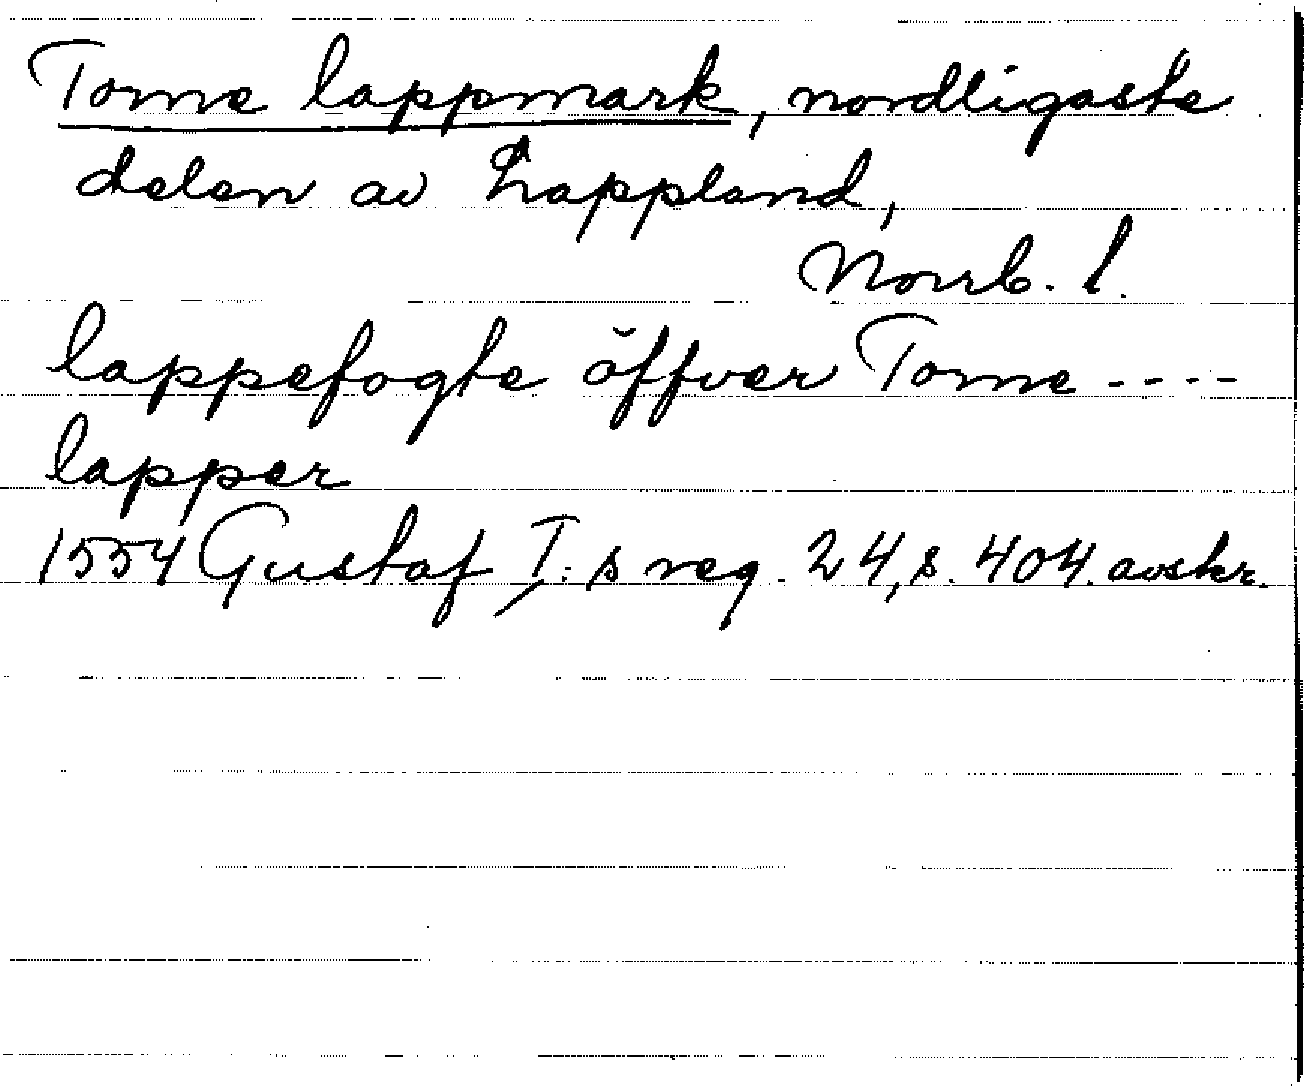 Torne lappmark, nordligaste
delen av Lappland,
Norrb. l.
lappefogte öffver Torne ----
lapper
1554 Gustaf I:s reg. 24, s. 404. avskr.